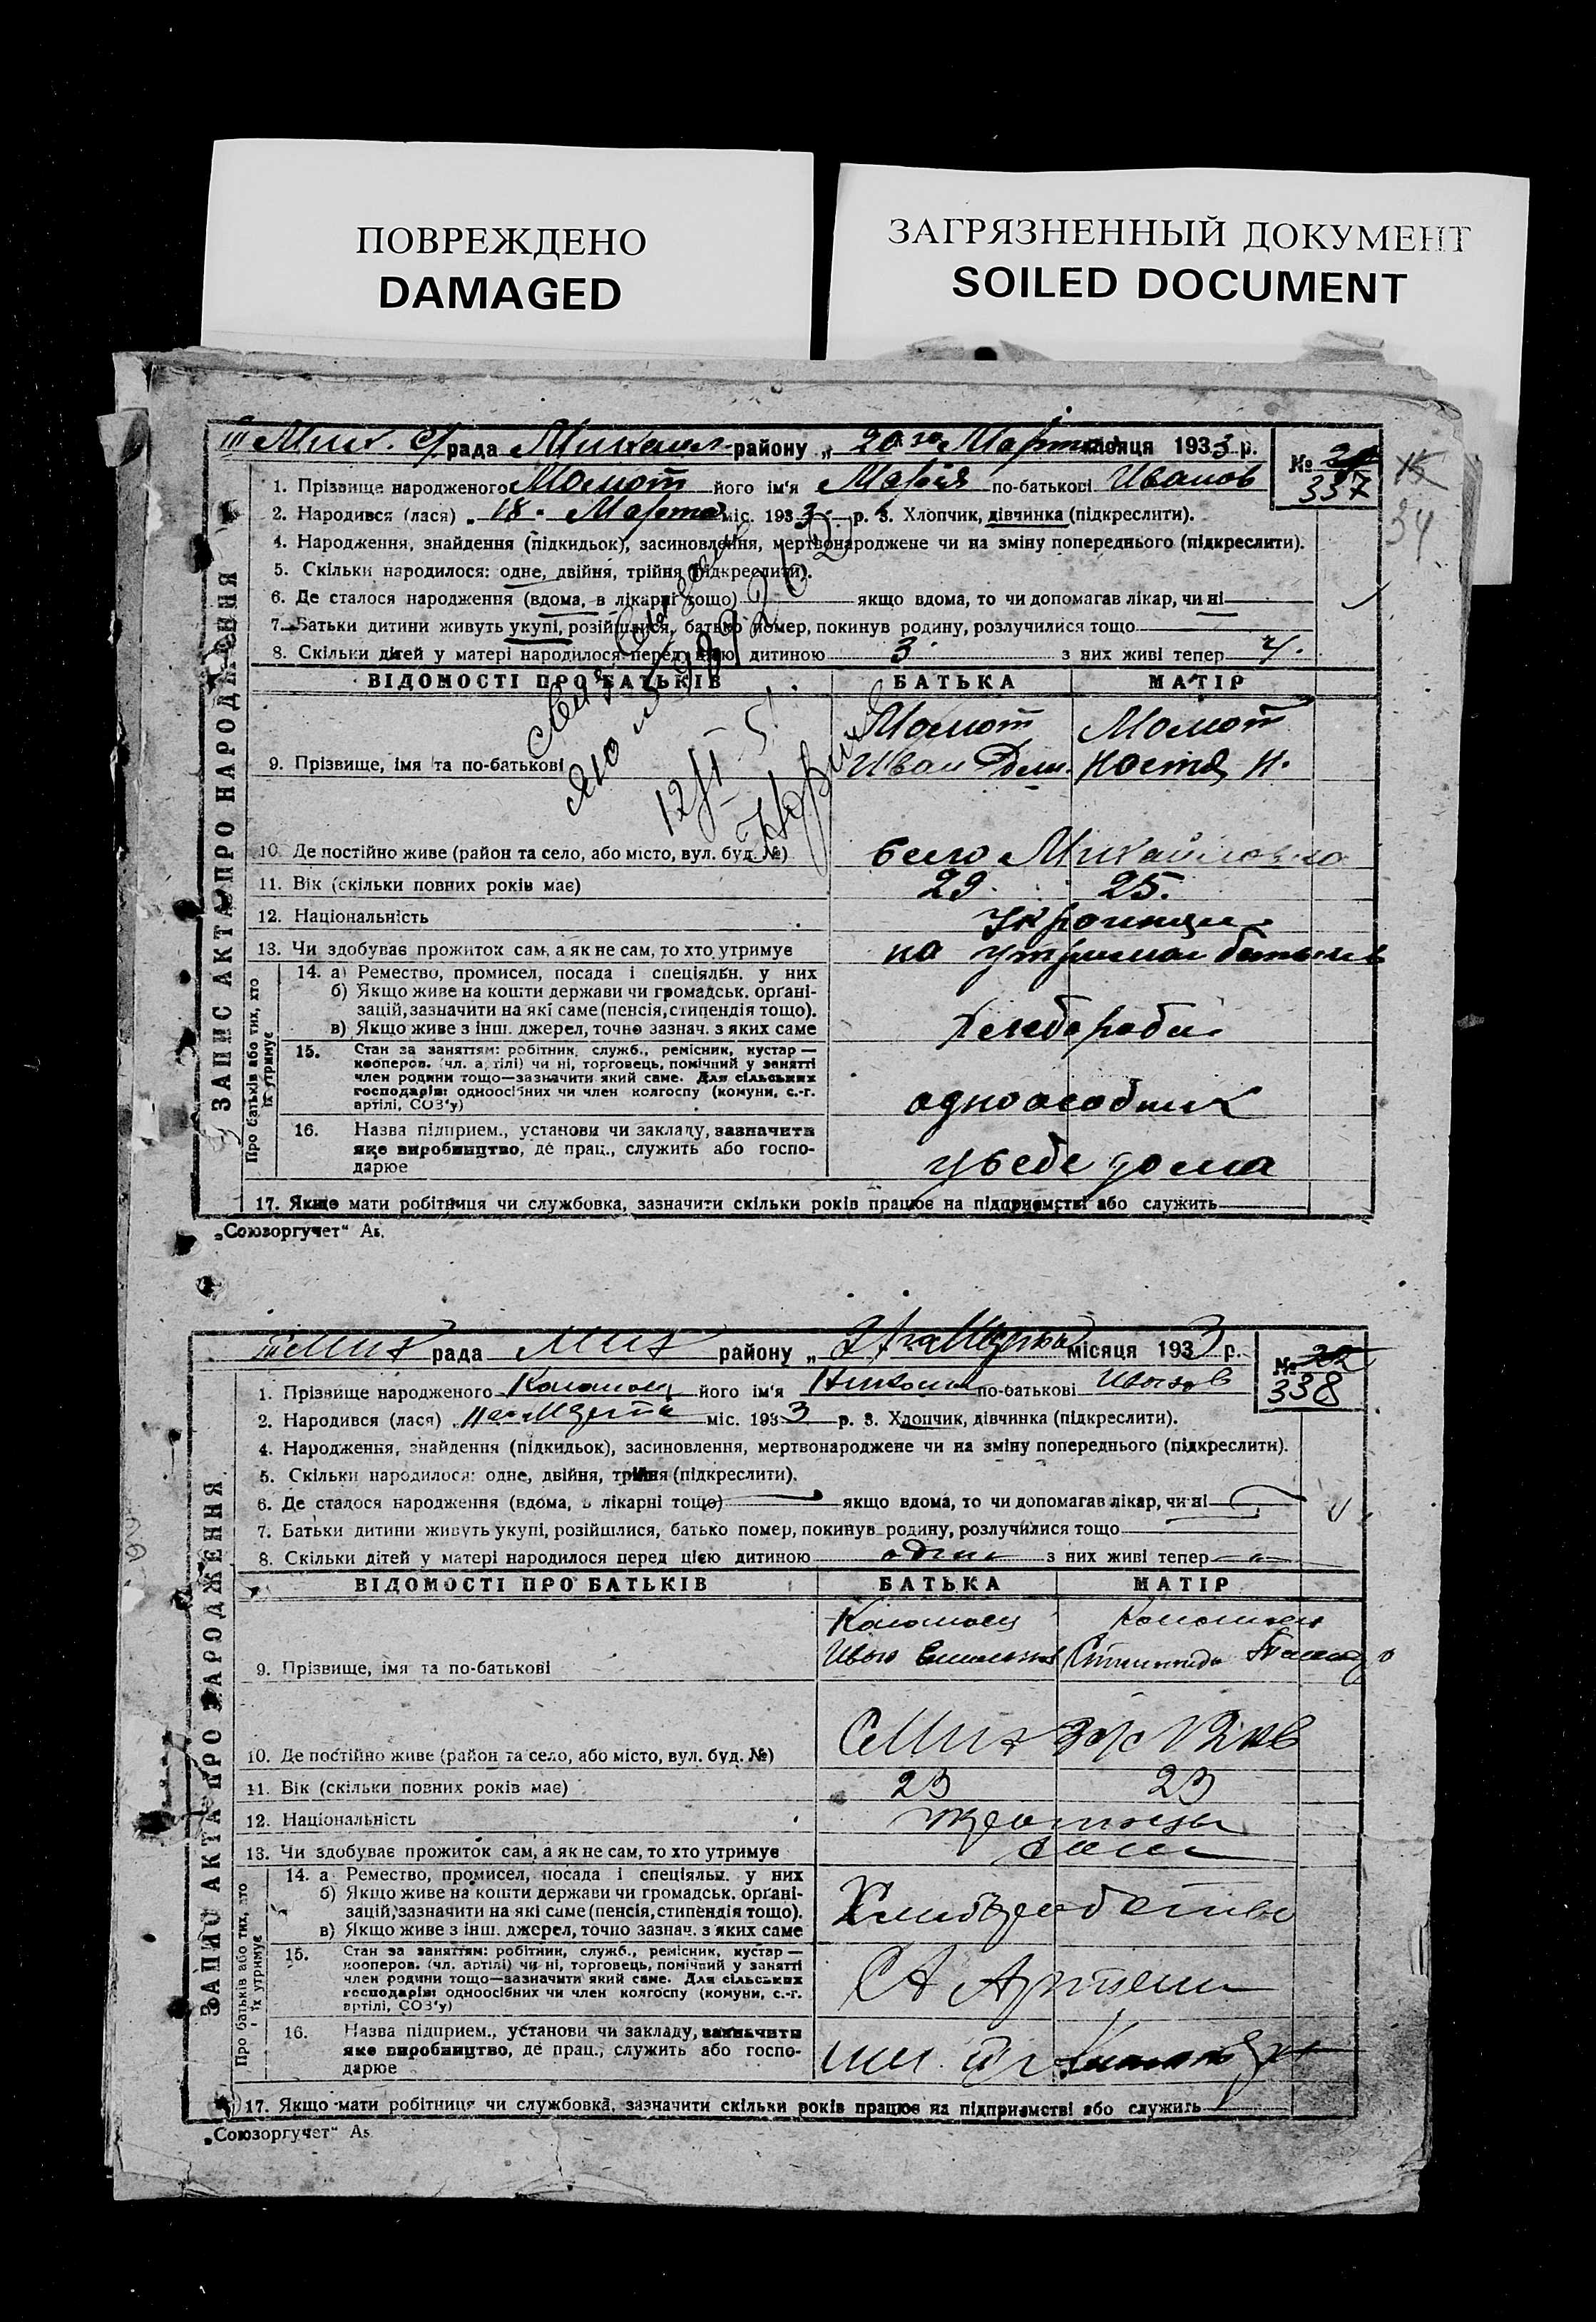 ПОВРЕЖДЕНО
DAMAGED
ЗАГРЯЗНЕННЫЙ ДОКУМЕНТ
SOILED DOCUMENT
ЗАПИС АКТА ПРО НАРОДЖЕННЯ
Мих. с/рада Михайл району „ 20го Марта місяця 1933 р.
№ 337
34
1. Прізвище народженого Момот його ім'я Марія по-батькові Иванов
2. Народився (лася) „ 18. Марта міс. 1933 р. 3. Хлопчик, дівчинка (підкреслити).
4. Народження, знайдення (підкидьок), засиновлення, мертвонароджене чи на зміну попереднього (підкреслити).
5. Скільки народилося: одне, двійня, трійня (підкреслити).
6. Де сталося народження (вдома, в лікарні тощо) якщо вдома, то чи допомагав лікар, чи ні
7. Батьки дитини живуть укупі, розійшлися, батько помер, покинув родину, розлучилися тощо
8. Скільки дітей у матері народилося перед цією дитиною 3 з них живі тепер
ВІДОМОСТІ ПРО БАТЬКІВ БАТЬКА МАТІР
Момот Момот
9. Прізвище, імя та по-батькові Иван Дем. Настя Н.
10. Де постійно живе (район та село, або місто, вул. буд. №) село Михайловка
11. Вік (скільки повних років має) 29 25.
12. Національність Украинци
13. Чи здобуває прожиток сам, а як не сам, то хто утримує на утриман батьков
Про батьків або тих, хто їх утримує
14. а) Ремество, промисел, посада і спеціяльн. у них
б) Якщо живе на кошти держави чи громадськ. орґані-
зацій, зазначити на які саме (пенсія, стипендія тощо).
в) Якщо живе з інш. джерел, точно зазнач. з яких саме хлебороби
15. Стан за заняттям: робітник, служб., ремісник, кустар —
кооперов. (чл. артілі) чи ні, торговець, помічний у занятті
член родини тощо—зазначити який саме. Для сільських
господарів: одноосібних чи член колгоспу (комуни, с.-г.
артілі, СОЗ'у) одноособник
16. Назва підприєм., установи чи закладу, зазначити
яке виробництво, де прац., служить або госпо-
дарює у себе дома
17. Якщо мати робітниця чи службовка, зазначити скільки років працює на підприємстві або служить
„Союзоргучет“
ЗАПИС АКТА ПРО НАРОДЖЕННЯ
Мих рада Мих району „ Марта місяця 1933 р.
№ 338
1. Прізвище народженого Коломоец його ім'я Николай по-батькові Иванов
2. Народився (лася) „ Марта міс. 1933 р. 3. Хлопчик, дівчинка (підкреслити).
4. Народження, знайдення (підкидьок), засиновлення, мертвонароджене чи на зміну попереднього (підкреслити).
5. Скільки народилося: одне, двійня, трійня (підкреслити).
6. Де сталося народження (вдома, в лікарні тощо) якщо вдома, то чи допомагав лікар, чи ні
7. Батьки дитини живуть укупі, розійшлися, батько помер, покинув родину, розлучилися тощо
8. Скільки дітей у матері народилося перед цією дитиною один з них живі тепер
ВІДОМОСТІ ПРО БАТЬКІВ БАТЬКА МАТІР
Коломоец Коломоец
9. Прізвище, імя та по-батькові Иван
10. Де постійно живе (район та село, або місто, вул. буд. №) С Мих
11. Вік (скільки повних років має) 23 23
12. Національність
13. Чи здобуває прожиток сам, а як не сам, то хто утримує сами
Про батьків або тих, хто їх утримує
14. а Ремество, промисел, посада і спеціяльн. у них
б) Якщо живе на кошти держави чи громадськ. орґані-
зацій, зазначити на які саме (пенсія, стипендія тощо).
в) Якщо живе з інш. джерел, точно зазнач. з яких саме
15. Стан за заняттям: робітник, служб., ремісник, кустар —
кооперов. (чл. артілі) чи ні, торговець, помічний у занятті
член родини тощо—зазначити який саме. Для сільських
господарів: одноосібних чи член колгоспу (комуни, с.-г.
артілі, СОЗ'у) Артели
16. Назва підприєм., установи чи закладу, зазначити
яке виробництво, де прац., служить або госпо-
дарює
17. Якщо мати робітниця чи службовка, зазначити скільки років працює на підприємстві або служить
„Союзоргучет“